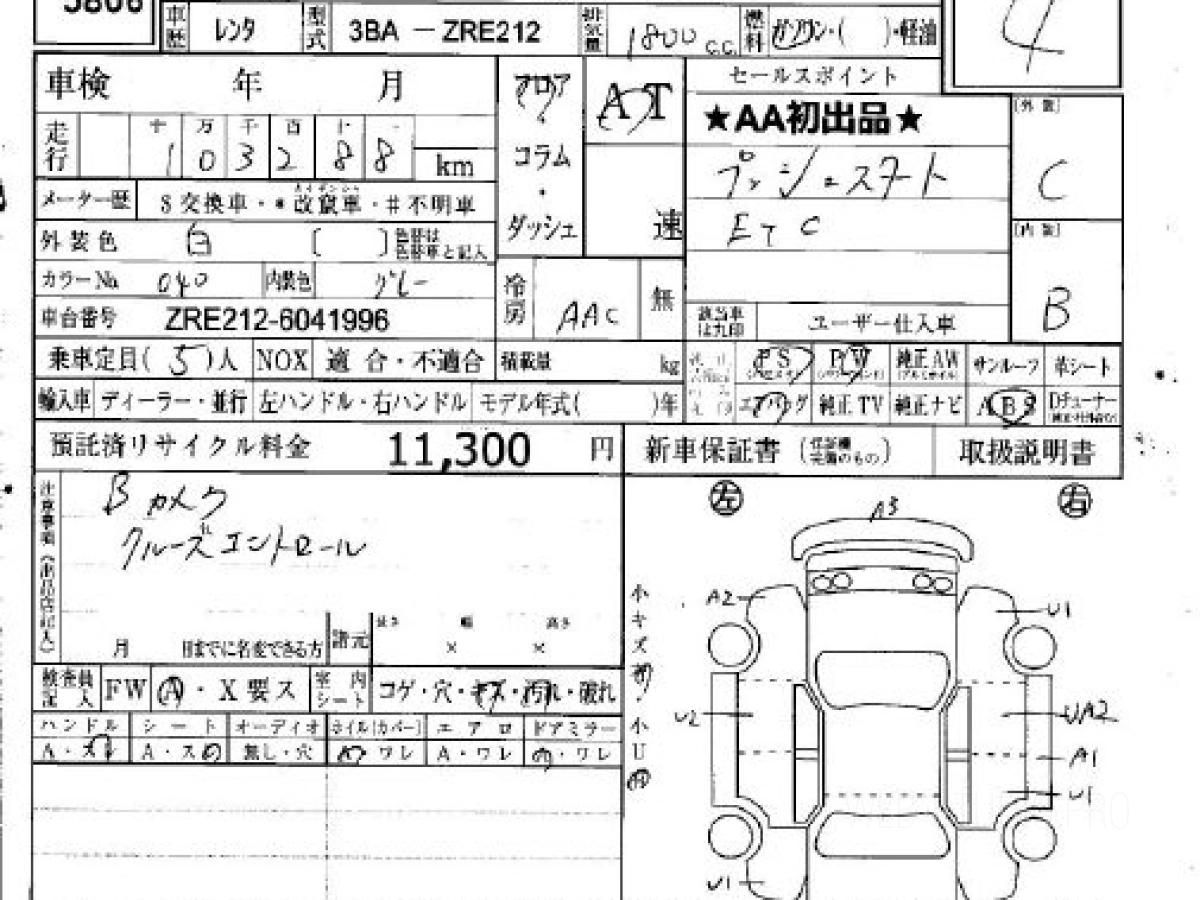 車歴 レンタ 型式 3BA － ZRE212 排気量 1800 C.C. 燃料 ガソリン・( )・軽油
4
車検 年 月
フロア
・
コラム
・
ダッシュ
AT
速
セールスポイント
★AA初出品★
プッシュスタート
ETC
[外装]
C
[内装]
B
走行 十 万 千 百 十 一
1 0 3 2 8 8 km
メーター歴 $交換車・*改竄車・#不明車
外装色 白 [ ] 色替は色替車と記入
カラーNo. 040 内装色 グレー
冷房 AAC 無
該当車は丸印 ユーザー仕入車
車台番号 ZRE212-6041996
乗車定員( 5 )人 NOX 適合・不適合 積載量 kg
PS PW 純正AW サンルーフ 革シート
輸入車 ディーラー・並行 左ハンドル・右ハンドル モデル年式( )年
エアバッグ 純正TV 純正ナビ ABS Dチューナー
預託済リサイクル料金 11,300 円 新車保証書 取扱説明書
注意事項(出品店記入)
Bカメラ
クルーズコントロール
月 日までに名変できる方 諸元 長さ 幅 高さ
× ×
検査員記入 FW A・X要ス 室内シート コゲ・穴・キズ・汚れ・破れ
ハンドル シート オーディオ ホイル(カバー) エアロ ドアミラー
A・スレ A・スレ 無し・穴 A・ワレ A・ワレ A・ワレ
左 右
A3
小キズ
小U
A2 U1
U2 UA2
A1
U1
U1